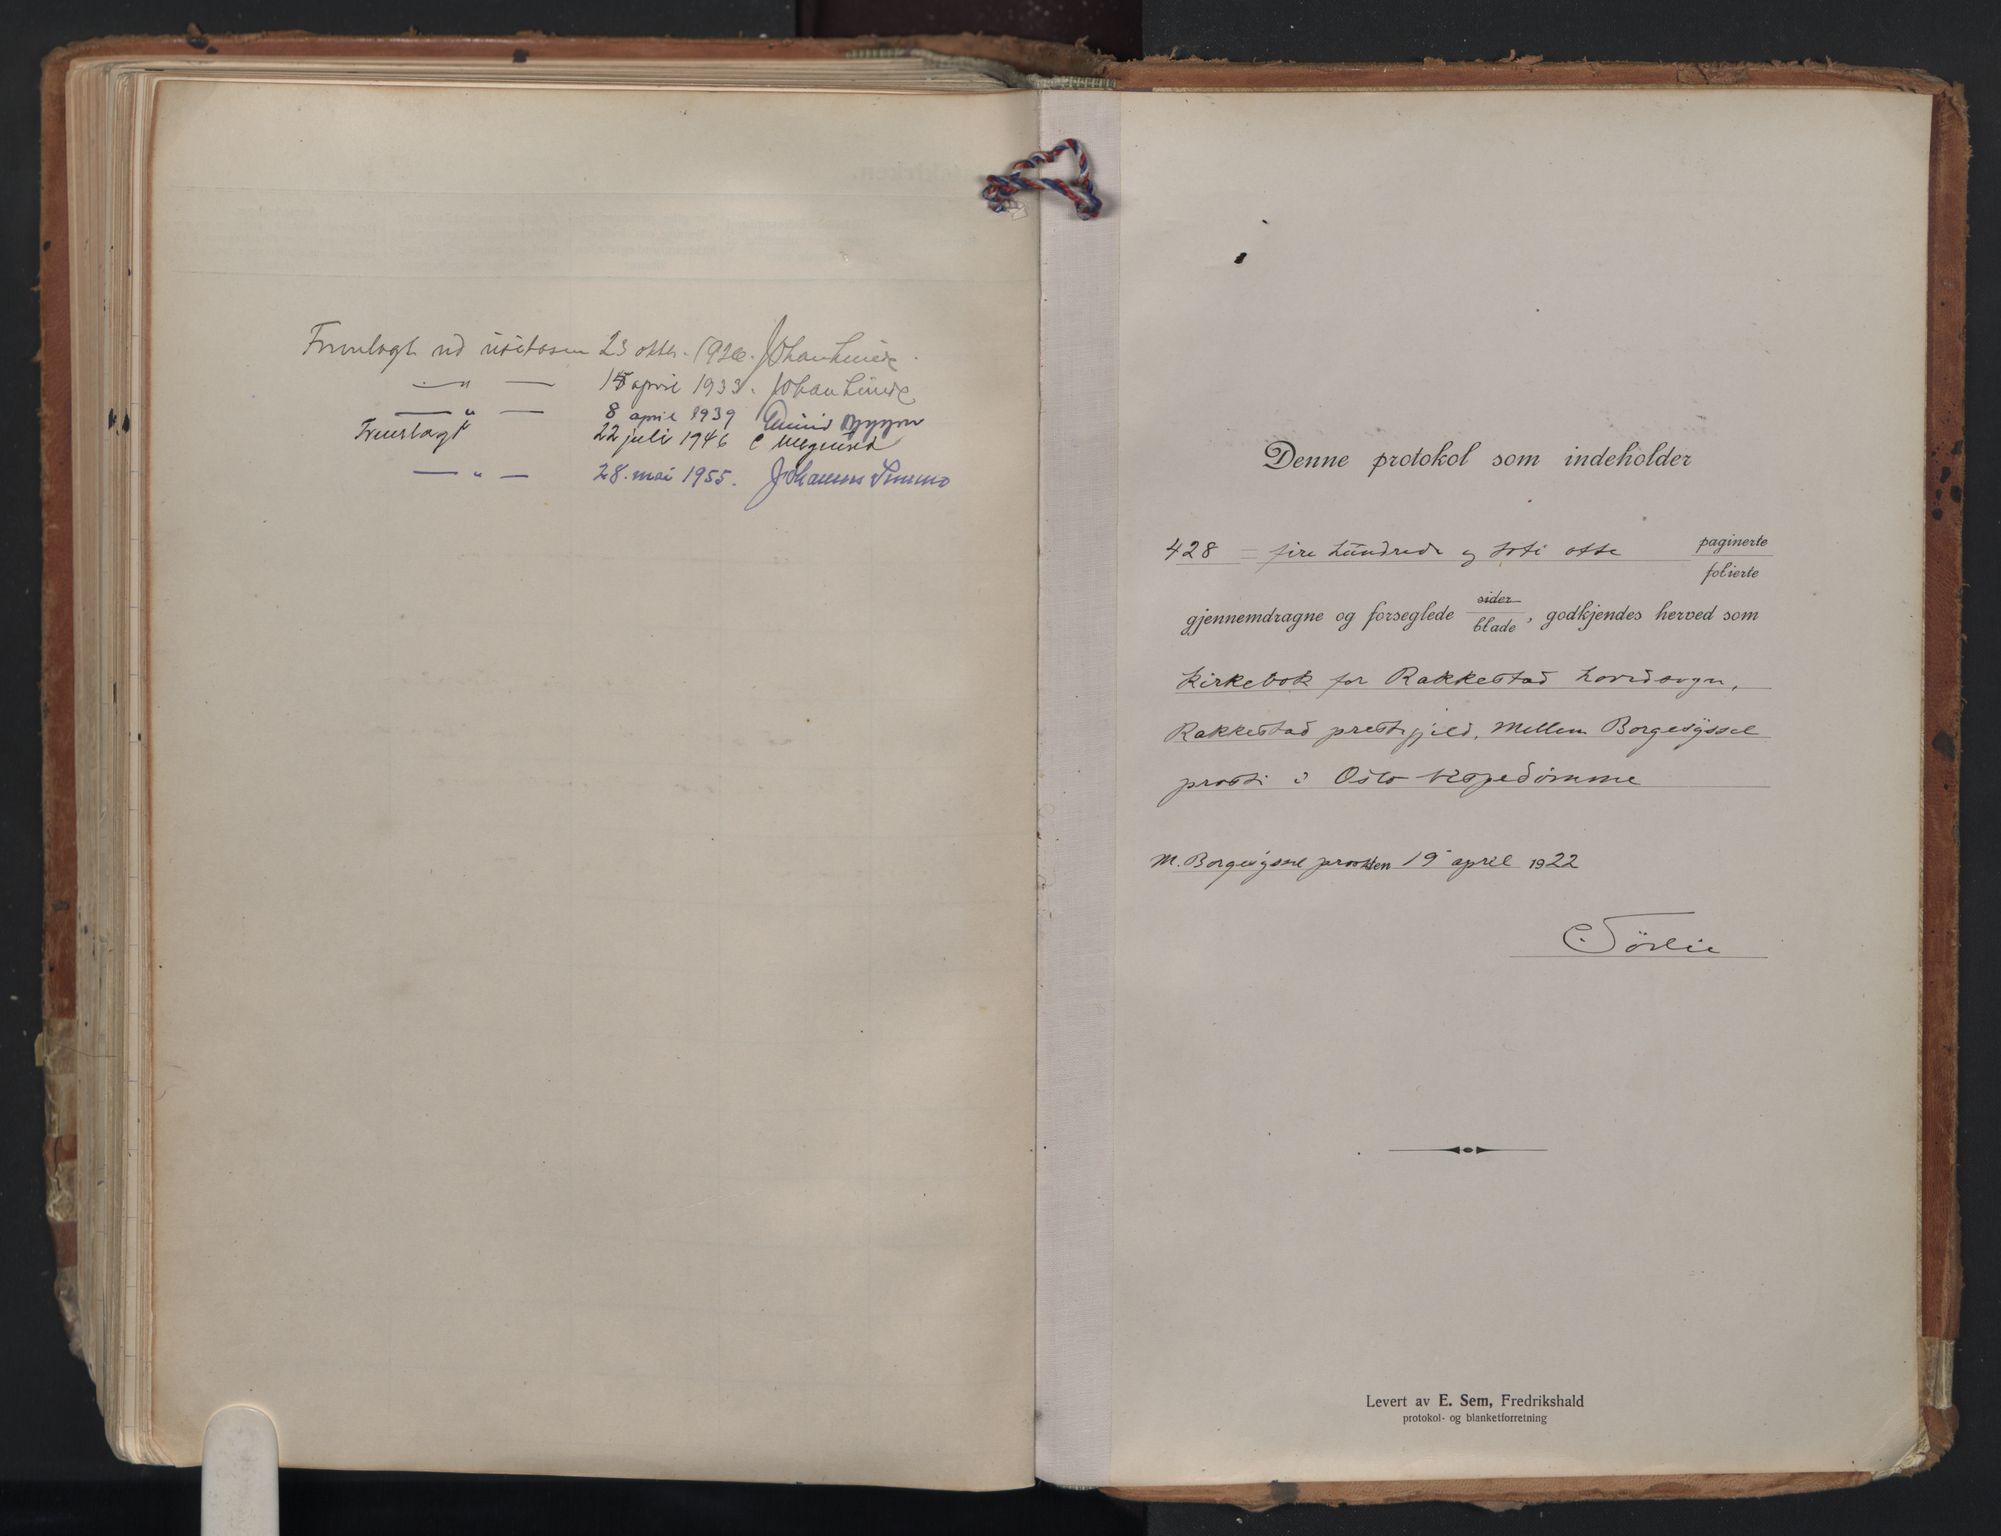 Fremlagt ved visitasen 23 oktbr. 1926. Johan Lunde.
— " — 15 april 1933. Johan Lunde
— " — 8 april 1939
Fremlagt 22 juli 1946
— " — 28. mai 1955. Johannes Smemo
Denne protokol som indeholder
428 = fire hundrede og toti otte paginerte
folierte
gjennemdragne og forseglede sider
blade, godkjendes herved som
kirkebok for Rakkestad hovedsogn,
Rakkestad prestegjeld, Mellem Borgesyssel
prosti i Oslo bispedømme
M. Borgesyssel prosti den 19 april 1922
C. Tørlie
Levert av E. Sem, Fredrikshald
protokol- og blanketforretning